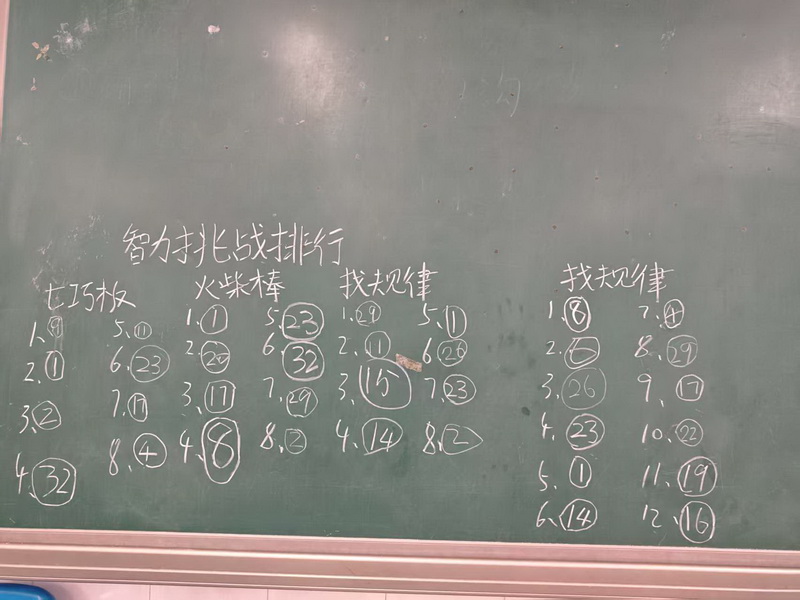 智力挑战排行
七巧板
1、⑨
2、①
3、②
4、㉜
5、⑪
6、㉓
7、⑰
8、④
火柴棒
1、①
2、⑳
3、⑰
4、⑧
5、㉓
6、㉜
7、㉙
8、②
找规律
1、㉙
2、⑪
3、⑮
4、⑭
5、①
6、㉖
7、㉓
8、②
找规律
1、⑧
2、⑥
3、㉖
4、㉓
5、①
6、⑭
7、④
8、㉙
9、⑰
10、㉒
11、⑲
12、⑯